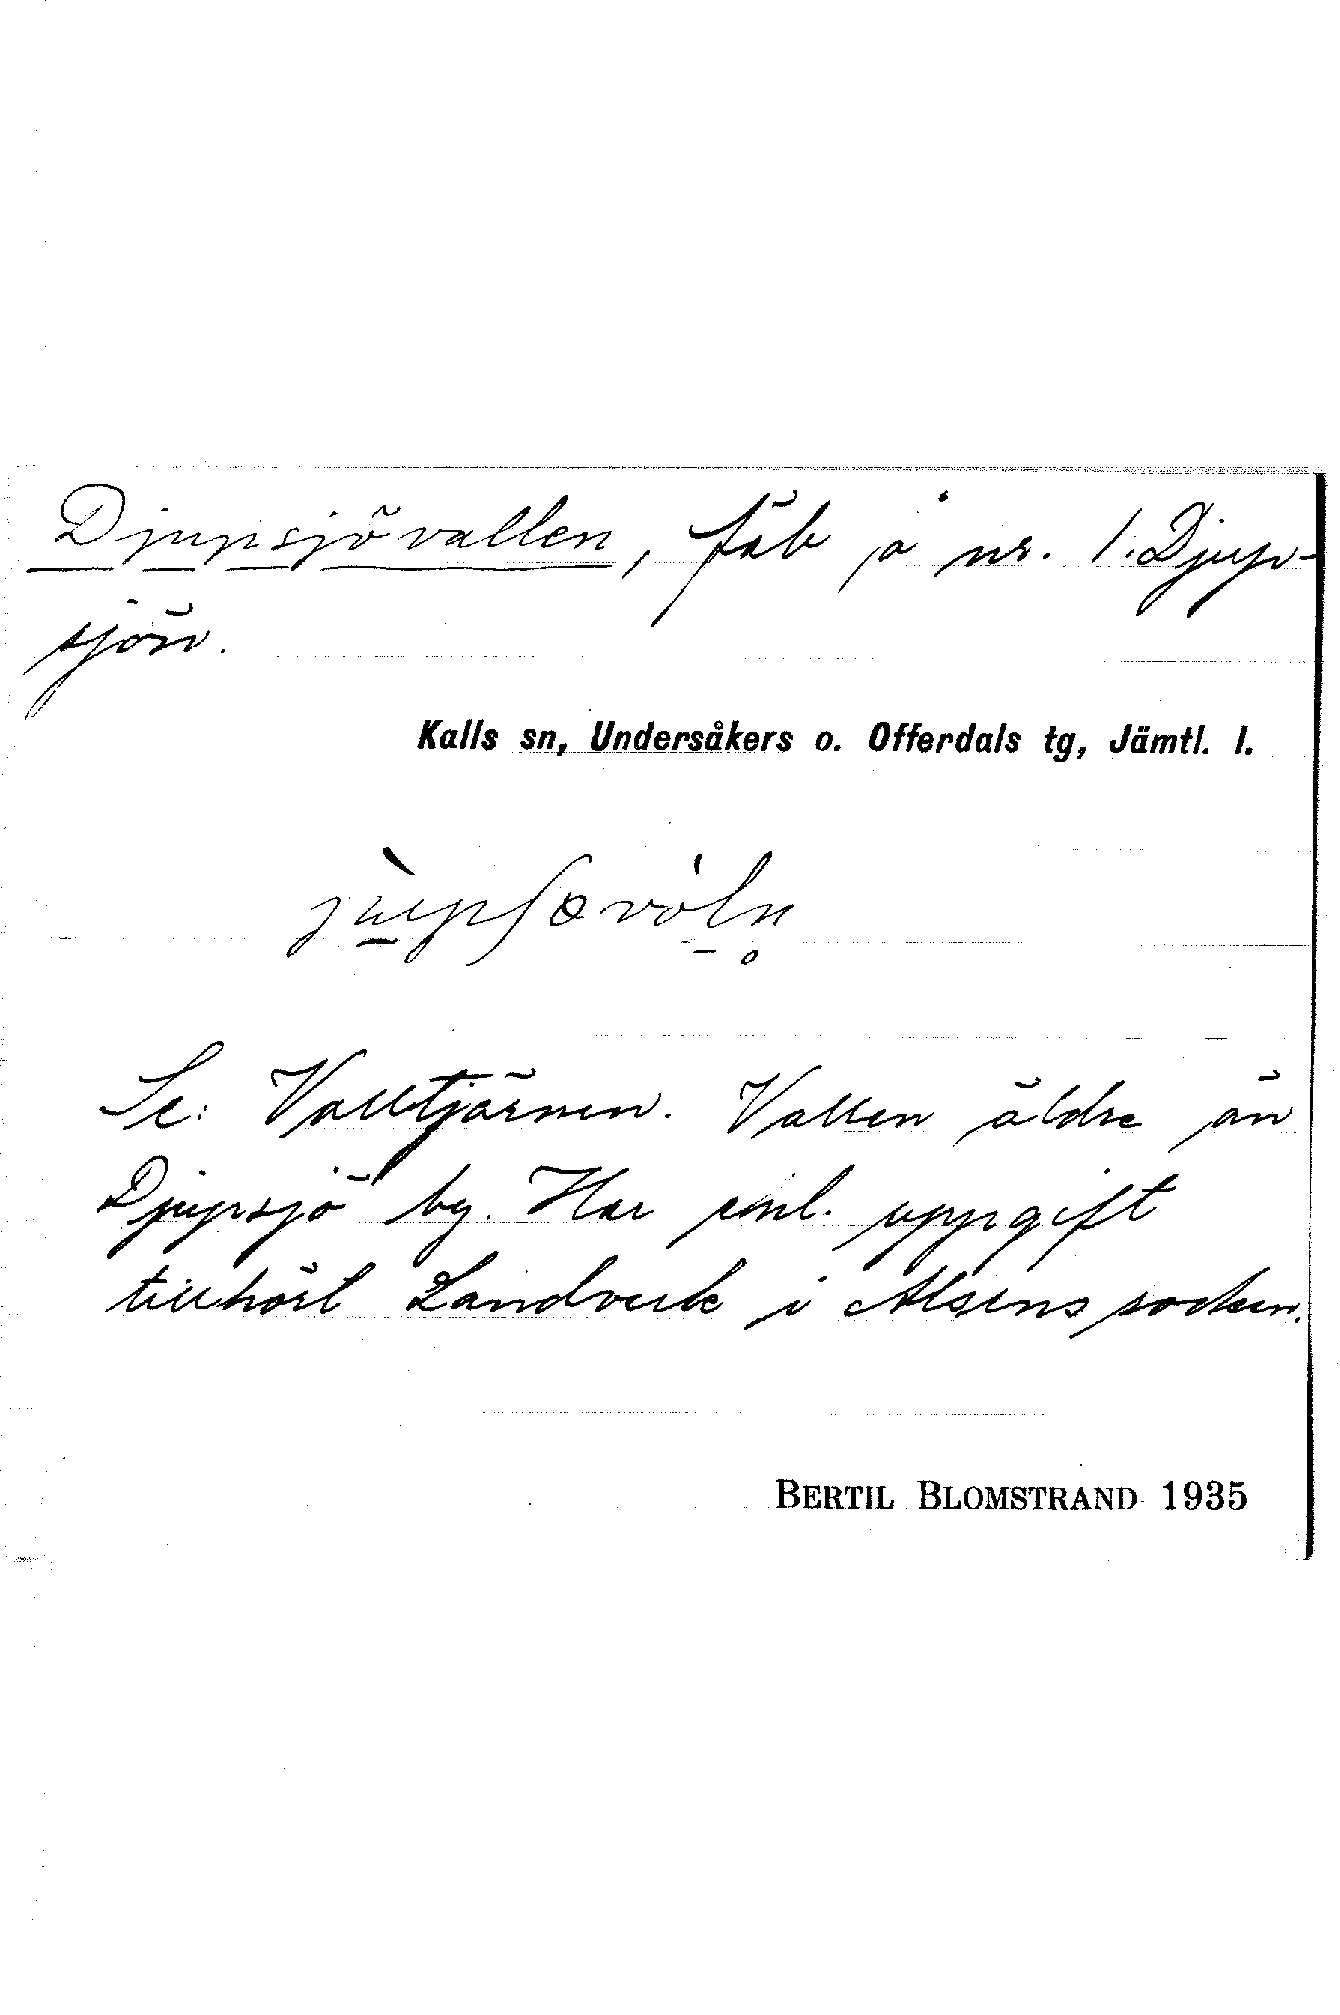 Djupsjövallen, fäb å nr. 1. Djup-
sjön.
Kalls sn, Undersåkers o. Offerdals tg, Jämtl. l.
Se: Valltjärnen. Vallen äldre än
Djupsjö by. Har enl. uppgift
tillhört Landverk i Alsens socken.
BERTIL BLOMSTRAND 1935